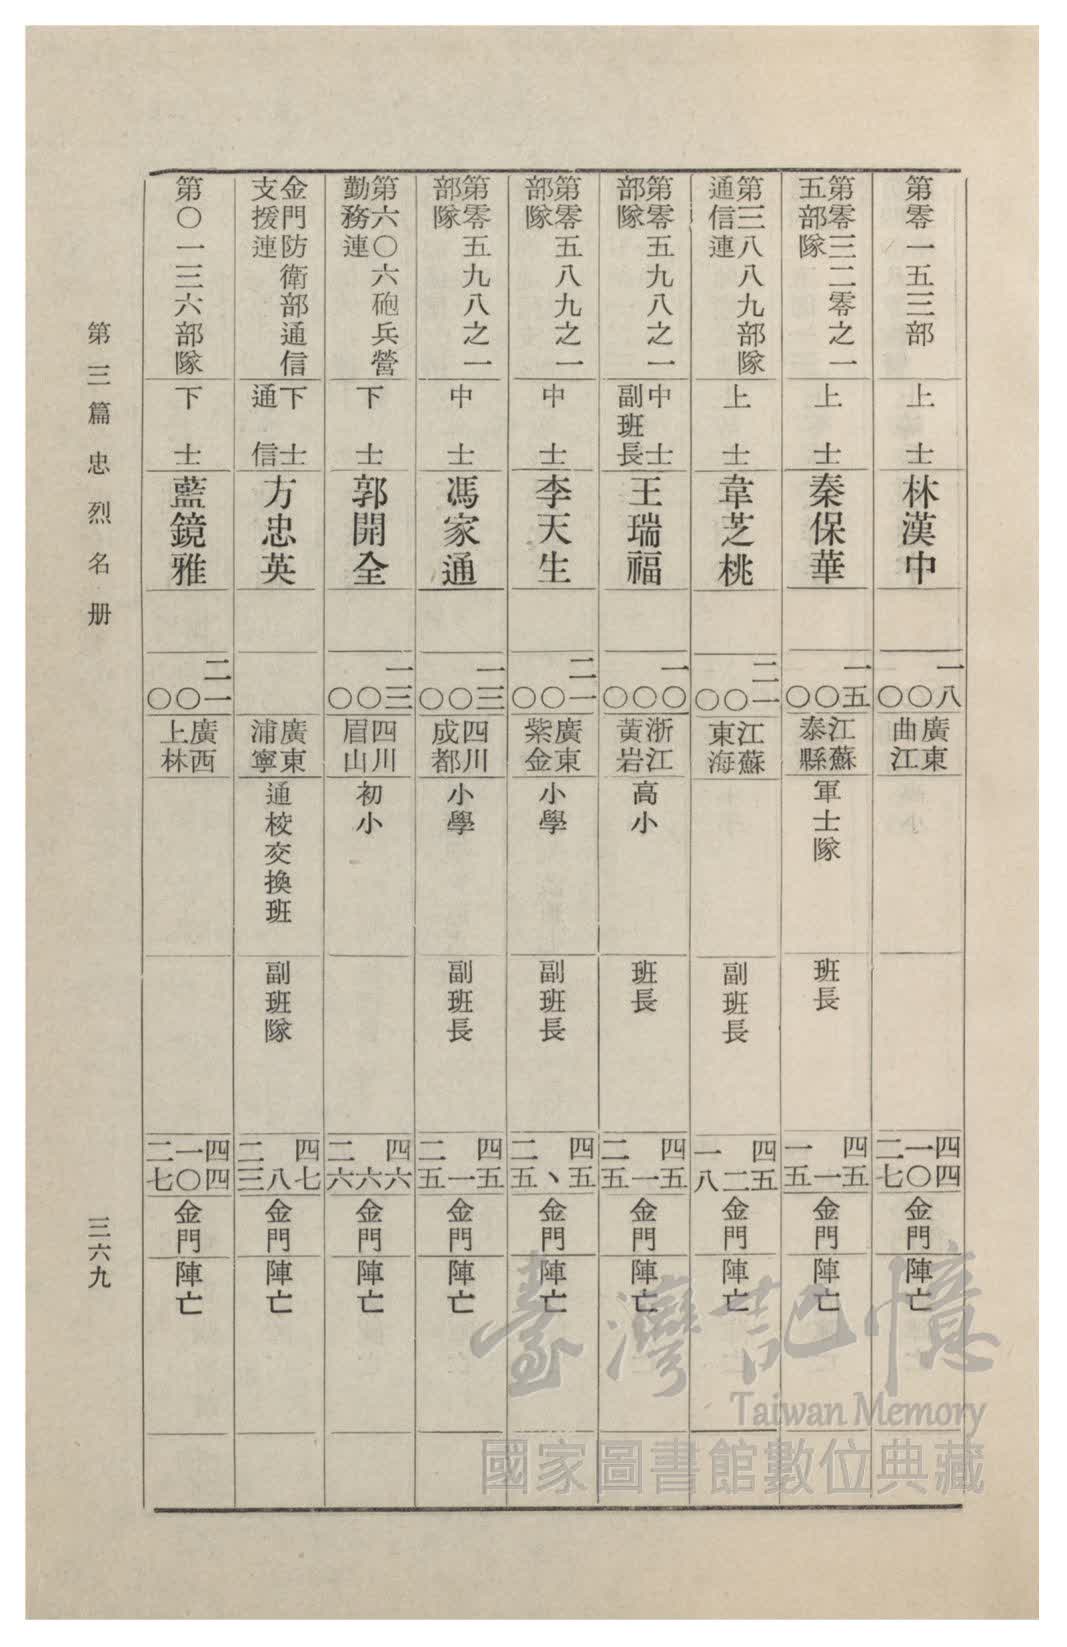 第零一五三部
上士
林漢中
一八
〇〇
廣東
曲江
四四
一〇
二七
金門
陣亡
第零三二零之一
五部隊
上士
秦保華
一五
〇〇
江蘇
泰縣
軍士隊
班長
四五
一
一五
金門
陣亡
第三八八九部隊
通信連
上士
韋芝桃
二一
〇〇
江蘇
東海
副班長
四五
二
一八
金門
陣亡
第零五九八之一
部隊
中士
副班長
王瑞福
一〇
〇〇
浙江
黃岩
高小
班長
四五
一
二五
金門
陣亡
第零五八九之一
部隊
中士
李天生
二一
〇〇
廣東
紫金
小學
副班長
四五
、
二五
金門
陣亡
第零五九八之一
部隊
中士
馮家通
一三
〇〇
四川
成都
小學
副班長
四五
一
二五
金門
陣亡
第六〇六砲兵營
勤務連
下士
郭開全
一三
〇〇
四川
眉山
初小
四六
六
二六
金門
陣亡
金門防衛部通信
支援連
下士
通信
方忠英
廣東
浦寧
通校交換班
副班隊
四七
八
二三
金門
陣亡
第〇一三六部隊
下士
藍鏡雅
二一
〇〇
廣西
上林
四四
一〇
二七
金門
陣亡
第三篇忠烈名册
三六九
臺灣記憶
Taiwan Memory
國家圖書館數位典藏